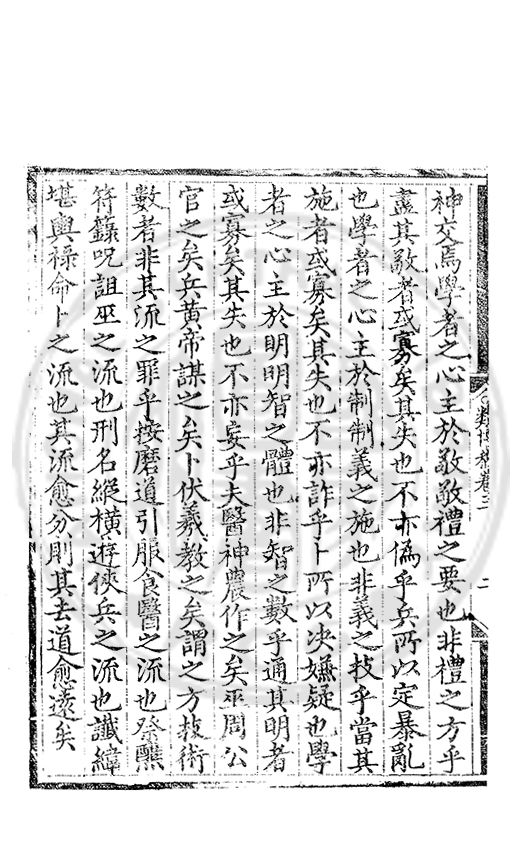 神交焉學者之心主於敬敬禮之要也非禮之方乎
盡其敬者或寡矣其失也不亦僞乎兵所以定暴亂
也學者之心主於制制義之施也非義之技乎當其
施者或寡矣其失也不亦詐乎卜所以决嫌疑也學
者之心主於明明智之體也非智之數乎通其明者
或寡矣其失也不亦妄乎夫醫神農作之矣巫周公
官之矣兵黃帝謀之矣卜伏羲敎之矣謂之方技術
數者非其流之罪乎按磨道引服食醫之流也祭醮
符籙呪詛巫之流也刑名縱橫遊俠兵之流也讖緯
堪輿祿命卜之流也其流愈分則其去道愈遠矣